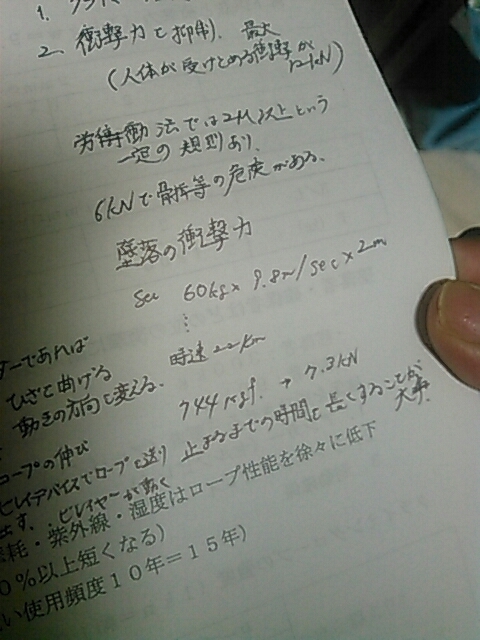 1.
2. 衝撃力と抑制. 最大
(人体が受けとめる衝撃が
12kN)
労働法では2m以上という
一定の規則あり.
6kNで骨折等の危度がある.
墜落の衝撃力
sec 60kg× 9.8m/sec×2m
⋮
ーであれば
時速22km
ひざと曲げる
動きの方向と変える.
744kgf. → 7.3kN
ロープの伸び
ビレイデバイスでロープと送り 止まるまでの時間と長くすることが
大事.
出す. ・ビレイヤーが動く
耗・紫外線・湿度はロープ性能を徐々に低下
0%以上短くなる)
い使用頻度10年=15年)